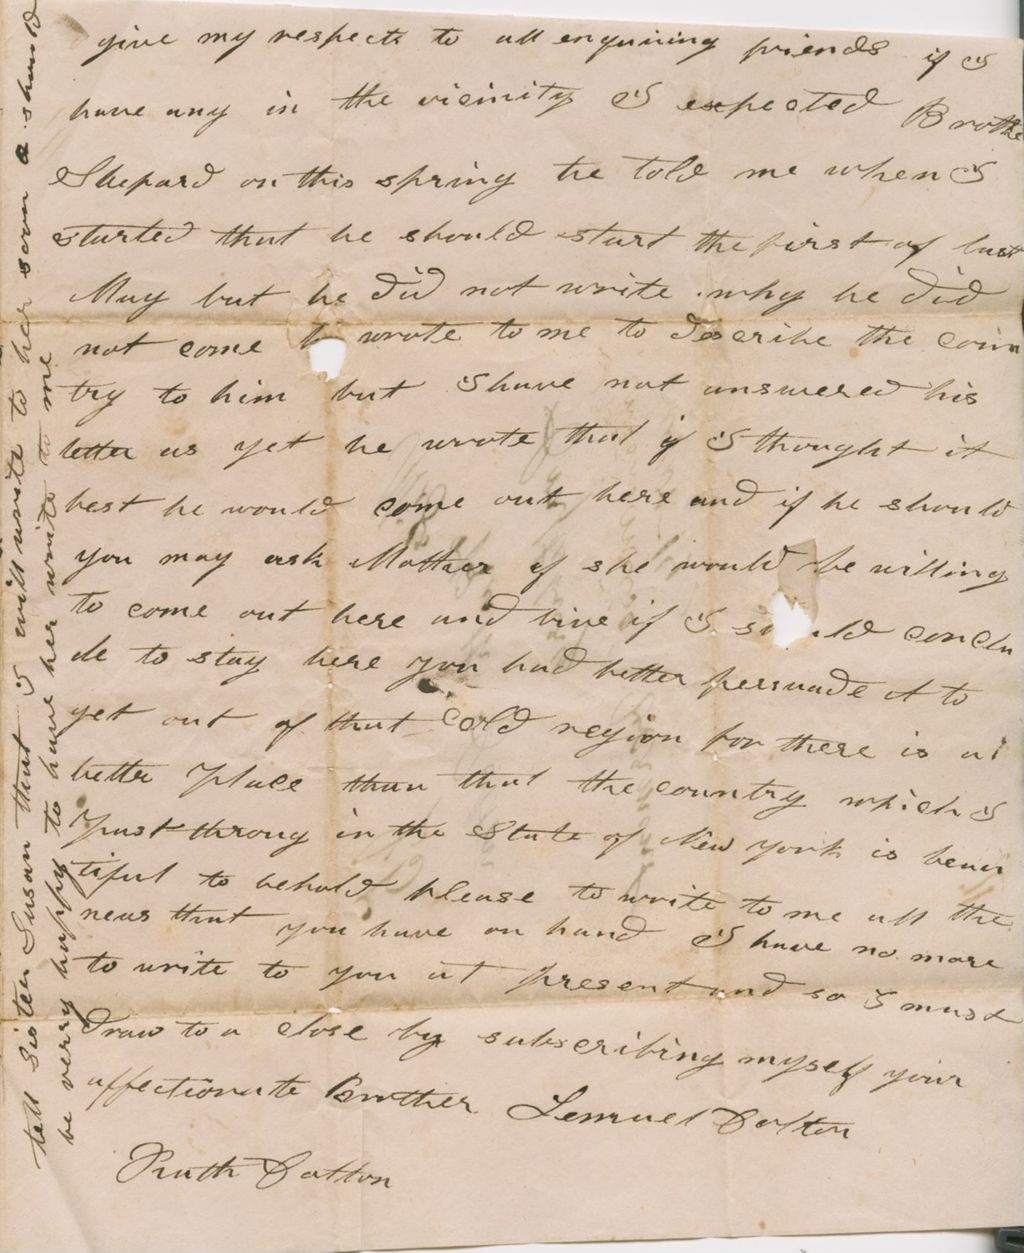 give my respects to all enquiring friends if I
have any in the vicinity I expected Brothe
Shepard on this spring he told me when I
started that he should start the first of last
May but he did not write why he did
not come wrote to me to describe the coun
try to him but I have not answered his
letter as yet he wrote that if I thought it
best he would come out here and if he should
you may ask Mother if she would be willing
to come out here and live if I should conclu
de to stay here you had better persuade it to
get out of that cold region for there is a
better place than that the country which I
past throug in the State of New york is beau
tiful to behold please to write to me all the
news that you have on hand I have no more
to write to you at present and so I must
Draw to a close by subscribing myself your
affectionate Brother Lemuel Dalton
Ruth Dalton
tell Sister Susan that I will write to her soon &
be verry happy to have her write to me